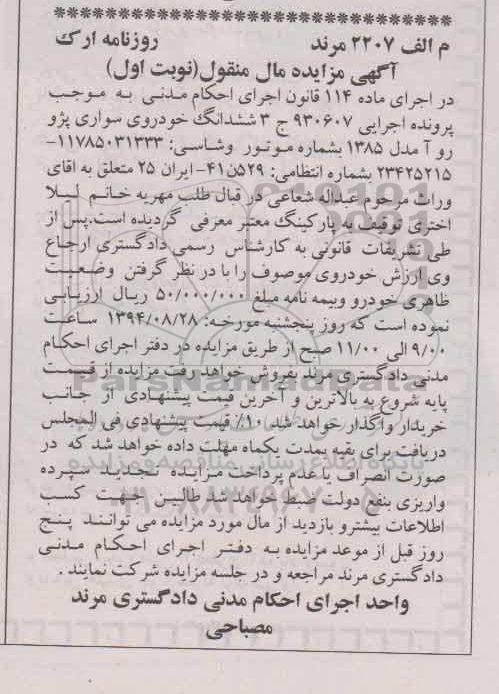 م الف ۲۲۰۷ مرند روزنامه ارک
آگهی مزایده مال منقول(نوبت اول)
در اجرای ماده ۱۱۴ قانون اجرای احکام مدنی به موجب
پرونده اجرایی ۹۳۰۶۰۷ ج ۳ ششدانگ خودروی سواری پژو
رو آ مدل ۱۳۸۵ بشماره موتور وشاسی: ۱۱۷۸۵۰۳۱۳۳۳-
۲۳۴۲۵۲۱۵ بشماره انتظامی: ۵۲۹ن۴۱- ایران ۲۵ متعلق به اقای
وراث مرحوم عبداله شعاعی در قبال طلب مهریه خانم لیلا
اختری توقیف به پارکینگ معتبر معرفی گردیده است.پس از
طی تشریفات قانونی به کارشناس رسمی دادگستری ارجاع
وی ارزش خودروی موصوف را با در نظر گرفتن وضعیت
ظاهری خودرو وبیمه نامه مبلغ ۵۰/۰۰۰/۰۰۰ ریال ارزیابی
نموده است که روز پنجشنبه مورخه: ۱۳۹۴/۰۸/۲۸ ساعت
۹/۰۰ الی ۱۱/۰۰ صبح از طریق مزایده در دفتر اجرای احکام
مدنی دادگستری مرند بفروش خواهد رفت مزایده از قیمت
پایه شروع به بالاترین و آخرین قیمت پیشنهادی از جانب
خریدار واگذار خواهد شد ۱۰٪ قیمت پیشنهادی فی المجلس
دریافت برای بقیه بمدت یکماه مهلت داده خواهد شد که در
صورت انصراف یا عدم پرداخت مزایده تجدید سپرده
واریزی بنفع دولت ضبط خواهد شد طالبین جهت کسب
اطلاعات بیشترو بازدید از مال مورد مزایده می توانند پنج
روز قبل از موعد مزایده به دفتر اجرای احکام مدنی
دادگستری مرند مراجعه و در جلسه مزایده شرکت نمایند .
واحد اجرای احکام مدنی دادگستری مرند
مصباحی
ParsNamadData